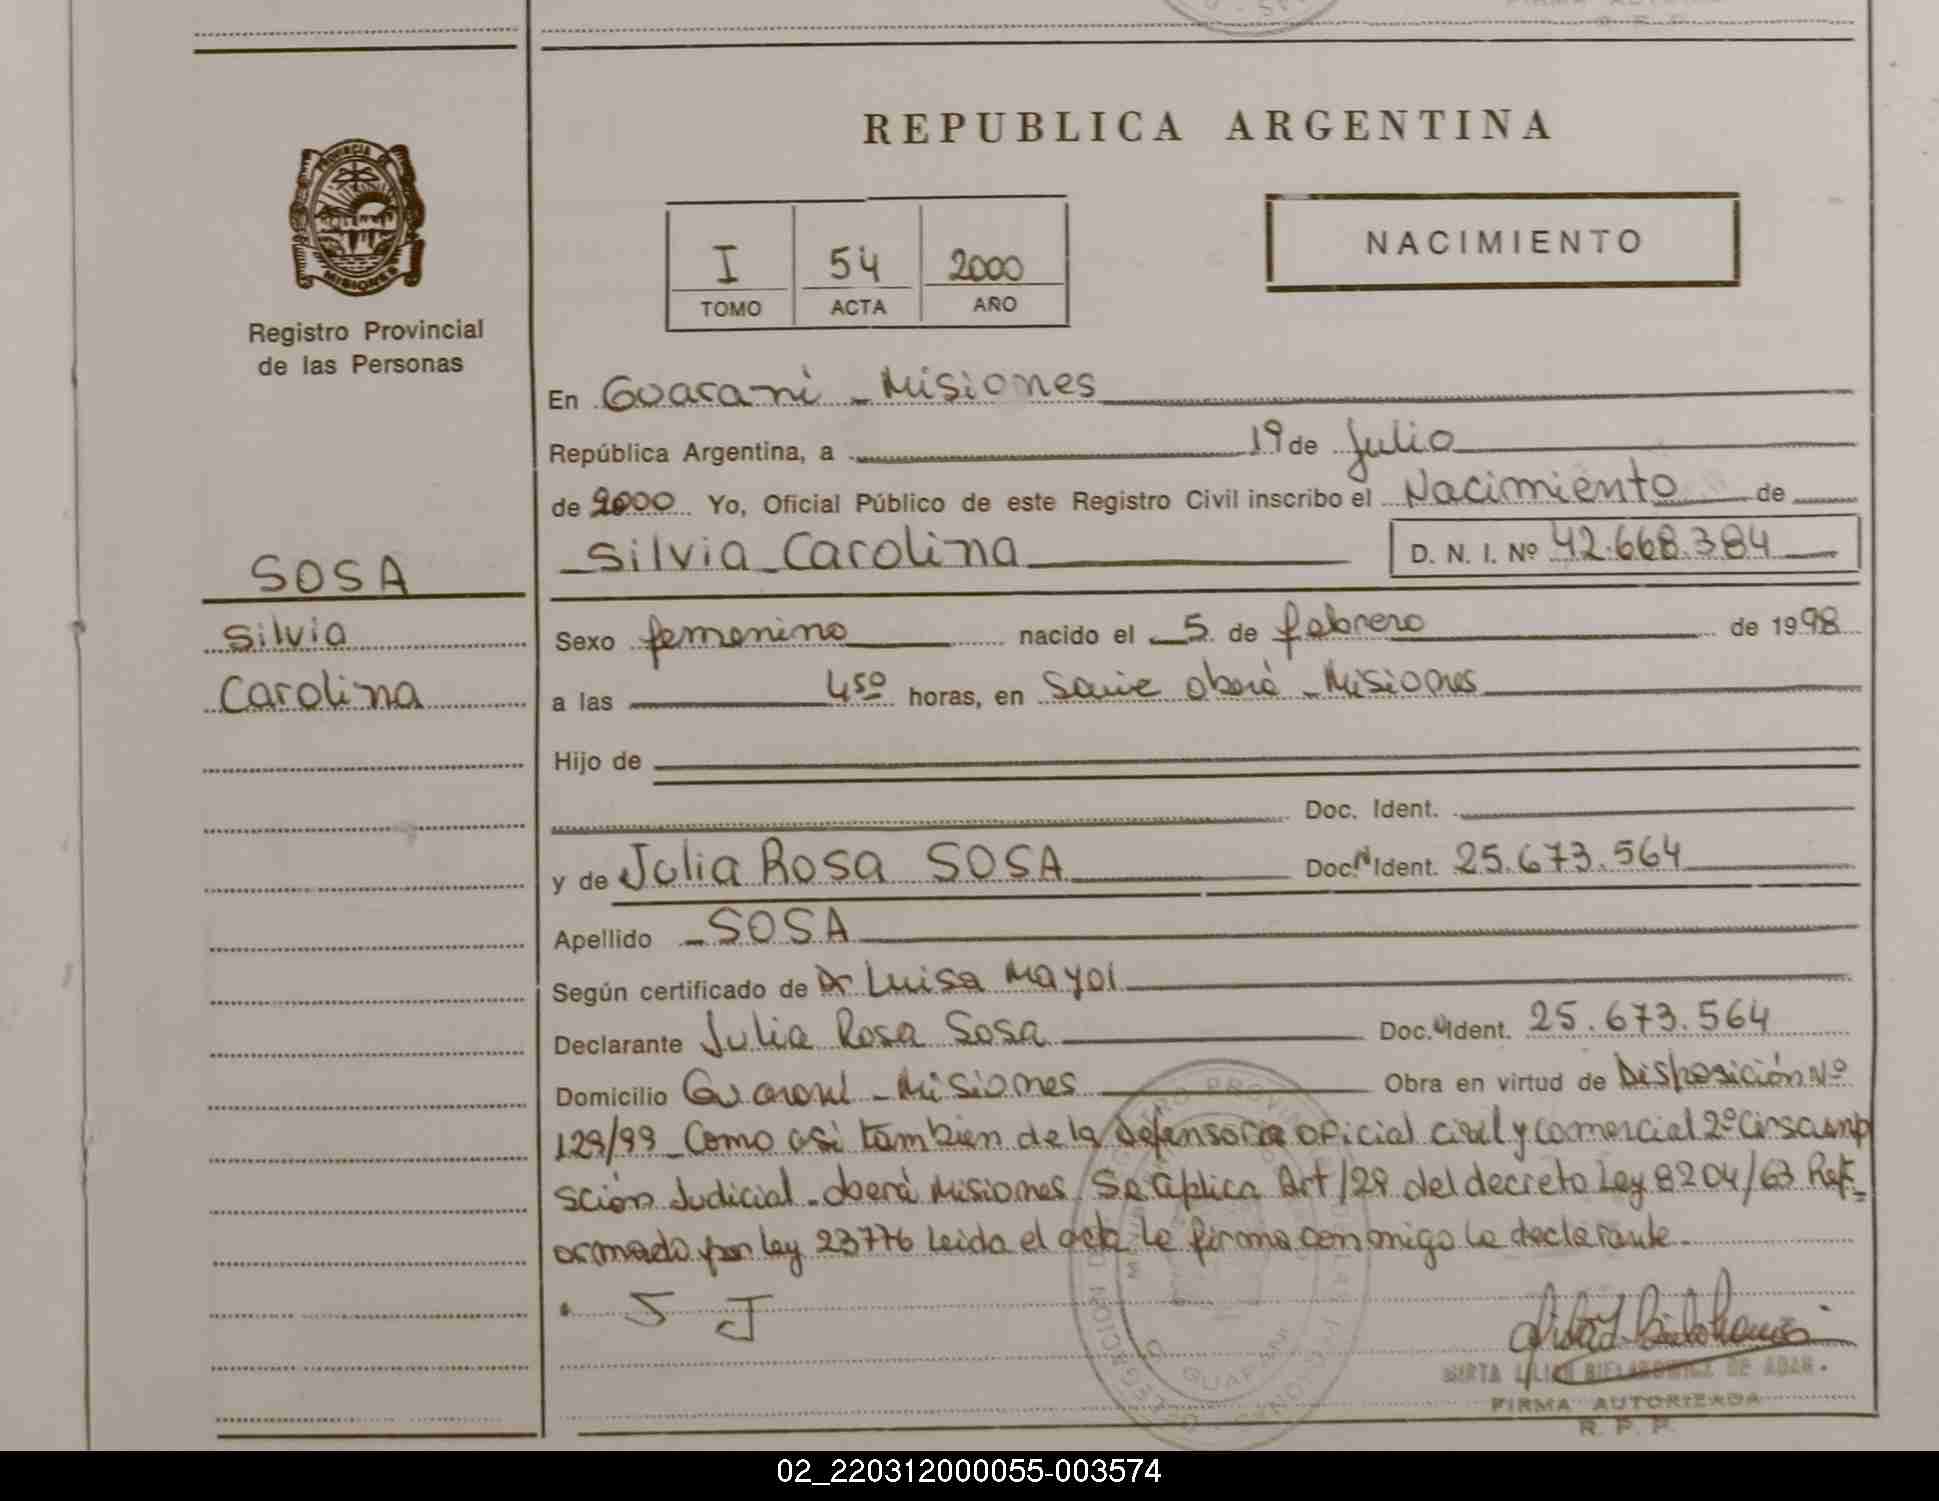 REPUBLICA ARGENTINA
PROVINCIA DE
MISIONES
Registro Provincial
de las Personas
I 54 2000
TOMO ACTA AÑO
NACIMIENTO
En Guarani - Misiones
República Argentina, a 19 de Julio
de 2000 Yo, Oficial Público de este Registro Civil inscribo el Nacimiento de
Silvia Carolina D. N. I. Nº 42.668.384
SOSA
Silvia
Carolina
Sexo femenino nacido el 5 de febrero de 1998
a las 4 50 horas, en Oberá - Misiones
Hijo de
Doc. Ident.
y de Julia Rosa SOSA Doc. Ident. 25.673.564
Apellido SOSA
Según certificado de Dr Luisa Mayol
Declarante Julia Rosa Sosa Doc. Ident. 25.673.564
Domicilio Guarani - Misiones Obra en virtud de Disposición Nº
129/99 - Como asi tambien de la Defensoria oficial civil y comercial 2º
sción Judicial - Oberá Misiones Se aplica Art/29 del decreto Ley 8204/63 Ref-
ormado por ley 23776 leida el acta le firma conmigo la declarante
S J
FIRMA AUTORIZADA
R. P. P.
02_220312000055-003574